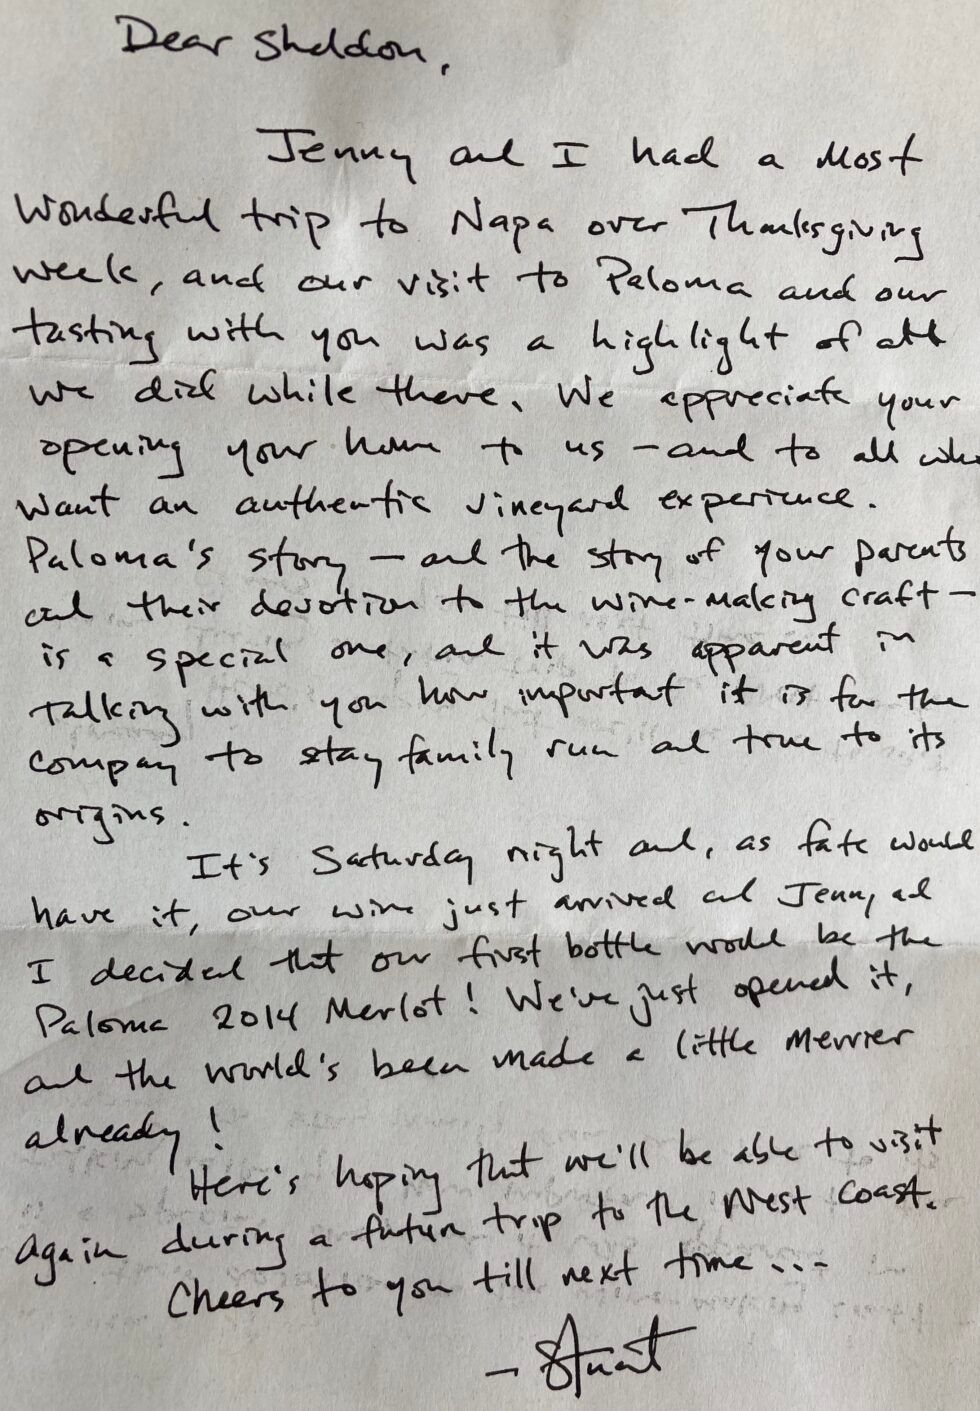 Dear Sheldon,
Jenny and I had a most
wonderful trip to Napa over Thanksgiving
week, and our visit to Paloma and our
tasting with you was a highlight of all
we did while there. We appreciate your
opening your home to us – and to all who
want an authentic vineyard experience.
Paloma's story – and the story of your parents
and their devotion to the wine-making craft –
is a special one, and it was apparent in
talking with you how important it is for the
company to stay family run and true to its
origins.
It's Saturday night and, as fate would
have it, our wine just arrived and Jenny and
I decided that our first bottle would be the
Paloma 2014 Merlot! We've just opened it,
and the world's been made a little merrier
already!
Here's hoping that we'll be able to visit
again during a future trip to the West Coast.
Cheers to you till next time...
– Stuart